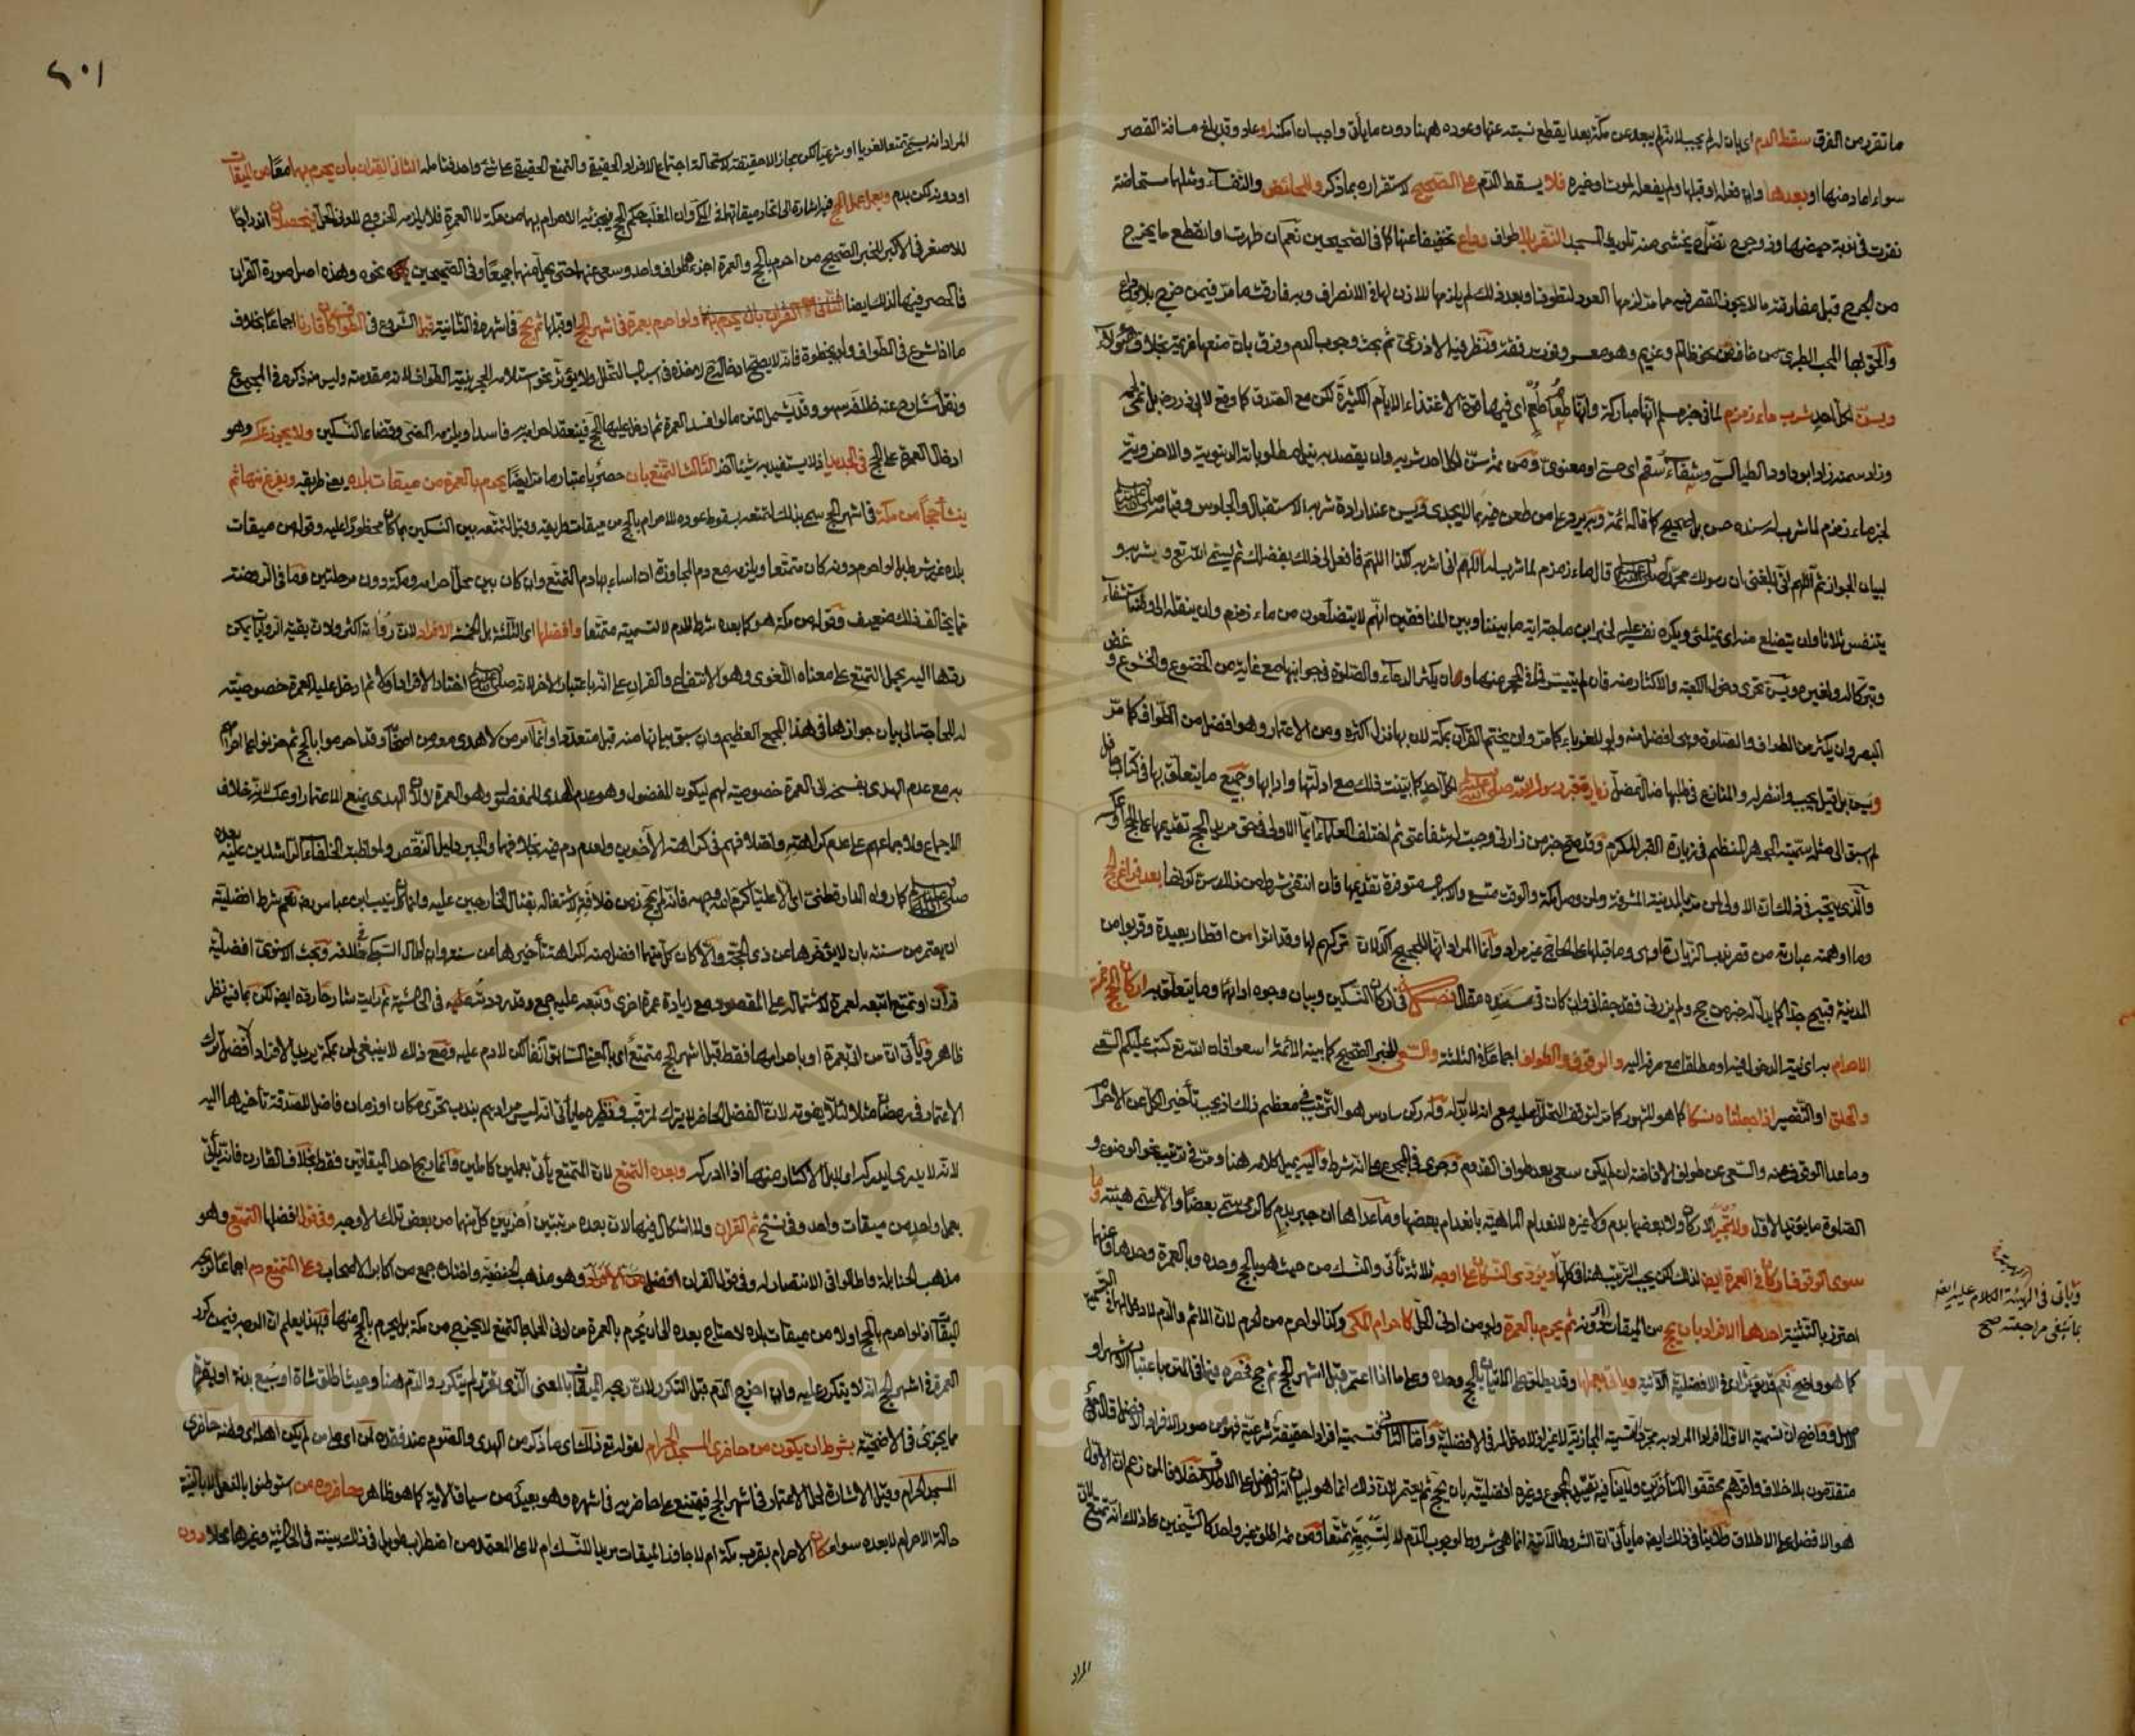 ما تقرر من الفرق سقط الدم اي بان انه لم يجب لانه لم يبعد عن مكة بعدا يقطع نسبته عنها وعوده هنا دون ما يأتي واجب ان امكنه او عاد وقد بلغ مسافة القصر
سواء اعاد منها او بعدها وان فعله او قبلها ولم يفعله لموت او غيره فلا يسقط الدم على الصحيح لاستقراره بما ذكر وللحائض والنفساء ومثلها مستحاضة
نفرت في نوبة حيضها وذو جرح نضاح يخشى منه تلويث المسجد النفر بلا طواف وداع تخفيفا عنها كما في الصحيحين نعم ان طهرت او انقطع ما يخرج
من الجرح قبل مفارقته ما لا يجوز القصر فيه مما مر لزمها العود لتطوف او بعد ذلك لم يلزمها للاذن لها في الانصراف وبه فارقت ما مر فيمن خرج بلا وداع
والحق بها المحب الطبري من خاف نحو ظالم او غريم وهو معسر وفوت رفقة ونظر فيه الاذرعي ثم بحث وجوب الدم وفرق بان منعها عزيمة بخلاف هؤلاء
ويسن لكل احد شرب ماء زمزم لما في خبر مسلم انها مباركة وانها طعام طعم اي فيها قوة الاغتذاء الايام الكثيرة لكن مع الصدق كما وقع لابي ذر رضي بل نمى لحمه
وزاد سمنه زاد ابو داود الطيالسي وشفاء سقم اي حسي او معنوي ومن ثم سن لكل احد شربه وان يقصد به نيل مطلوباته الدنيوية والاخروية
لخبر ماء زمزم لما شرب له سنده حسن بل صحيح كما قاله ائمة وبه يرد على من طعن فيه بما لا يجدي ويسن عند ارادة شربه الاستقبال والجلوس وقيامه صلى الله عليه وسلم
لبيان الجواز ثم اللهم انه بلغني ان رسولك محمدا صلى الله عليه وسلم قال ماء زمزم لما شرب له اللهم اني اشربه لكذا اللهم فافعل لي ذلك بفضلك ثم يسمي الله تع ويشربه و
يتنفس ثلاثا وان يتضلع منه اي يمتلئ ويكره نفسه عليه لخبر ابن ماجه اية ما بيننا وبين المنافقين انهم لا يتضلعون من ماء زمزم وان ينقله الى وطنه استشفاء
وتبركا له ولغيره ويسن تحري دخول الكعبة والاكثار منه فان لم يتيسر فما في الحجر منها وان يكثر الدعاء والصلاة في جوانبها مع غاية من الخضوع والخشوع وغض
البصر وان يكثر من الطواف والصلاة وهي افضل منه ولو للغرباء كما مر وان يختم القرآن بمكة لان بها نزل اكثره ومن الاعتمار وهو افضل من الطواف كما مر
ويسن بل قيل يجب وانتصر له والمنازع في طلبها ضال مضل زيارة قبر رسول الله صلى الله عليه وسلم لكل احد كما بينت ذلك مع ادلتها وادابها وجميع ما يتعلق بها في كتاب حافل
لم اسبق الى مثله سميته الجوهر المنظم في زيارة القبر المكرم وقد صح خبر من زارني وجبت له شفاعتي ثم اختلف العلماء ايما الاولى في حق مريد الحج تقديمها على الحج او عكسه
والذي يتجه في ذلك ان الاولى لمن مر بالمدينة المشرفة ولمن وصل مكة والوقت متسع والاسباب متوفرة تقديمها فان انتفى شرط من ذلك سن كونها بعد فراغ الحج
وما اوهمته عبارته من قصر ندب الزيارة وما قبلها على الحاج غير مراد وانما المراد انها للحجيج آكد لان تركهم لها وقد اتوا من اقطار بعيدة وقربوا من
المدينة قبيح جدا كما يدل له خبر من حج ولم يزرني فقد جفاني وان كان في سنده مقال فصل في اركان النسكين وبيان وجوه ادائها وما يتعلق به اركان الحج خمسة
الاحرام به اي نية الدخول فيه او مطلقا مع صرفه اليه والوقوف والطواف اجماعا في الثلثة والسعي للخبر الصحيح كما بينه الائمة اسعوا فان الله تع كتب عليكم السعي
والحلق او التقصير اذا جعلناه نسكا كما هو المشهور كما مر لتوقف التحلل عليه مع انه لا بدل له وله ركن سادس هو الترتيب في معظم ذلك اذ يجب تأخير الكل عن الاحرام
وما عدا الوقوف عنه والسعي عن طواف الافاضة ان لم يكن سعى بعد طواف القدوم وجرى في المجموع على انه شرط واليه يميل كلامه هنا ومر في ترتيب نحو الوضوء و
الصلوة ما يؤيد الاول ولا تجبر الاركان ولا بعضها بدم ولا غيره لانعدام الماهية بانعدام بعضها وما عداها ان جبر بدم كالرمي سمي بعضا والا سمي هيئة وما
سوى الوقوف اركان في العمرة ايض لذلك لكن يجب الترتيب هنا في كلها ويؤدى النسكان على اوجه ثلاثة تأتي والنسك من حيث هو بالحج وحده وبالعمرة وحدها وعنها
احترز بالتثنية احدها الافراد بان يحج من الميقات او دونه ثم يحرم بالعمرة ولو من ادنى الحل كاحرام المكي وكذا لو احرم من الحرم لان الاثم والدم لا دخل لهما في التسمية
كما هو واضح نعم قد يؤثر في الافضلية الآتية ويأتي بعملها وقد يطلق على الاتيان بالحج وحده وعلى ما اذا اعتمر قبل اشهر الحج ثم حج فحصره فيما في المتن باعتبار الاشهر او
الاصل وواضح ان تسمية الاول افرادا المراد به مجرد التسمية المجازية لا غير اذ لا دخل له في الافضلية واما الثاني فتسميته افرادا حقيقة شرعية فهو من صور الافراد الافضل قال جمع
متقدمون بلا خلاف واقرهم محققوا المتأخرين ولا ينافيه تقييد المجموع وغيره افضليته بان يحج ثم يعتمر لان ذلك انما هو لبيان انه الافضل على الاطلاق خلافا لمن زعم ان الاول
هو الافضل على الاطلاق ولا ينافي ذلك ايض ما يأتي ان الشروط الآتية انما هي شروط لوجوب الدم لا لتسميته تمتعا ومن ثم اطلق غير واحد كالشيخين على ذلك انه تمتع لان
ويأتي في الهيئة الكلام عليه ايض
بما ينبغي مراجعته صح
المراد
٢٠١
المراد انه يسمى تمتعا لغويا او شرعيا لكن مجازا لا حقيقة لاستحالة اجتماع الافراد الحقيقي والتمتع الحقيقي على شئ واحد فتأمله الثاني القران بان يحرم بهما معا من الميقات
او دونه لكن بدم ويعمل عمل الحج فيه اشارة الى اتحاد ميقاتهما في المكي وان المغلب حكم الحج فيجزئه الاحرام بهما من مكة لا العمرة فلا يلزمه الخروج لادنى الحل فيحصلان اندراجا
للاصغر في الاكبر للخبر الصحيح من احرم بالحج والعمرة اجزأه طواف واحد وسعي عنهما حتى يحل منهما جميعا وفي الصحيحين نحوه وهذه اصل صورة القران
فالحصر فيها لذلك ايضا ولو احرم بعمرة في اشهر الحج او قبلها ثم بحج في اشهره في الثانية قبل الشروع في الطواف كان قارنا اجماعا بخلاف
ما اذا شرع في الطواف ولو بخطوة فانه لا يصح ادخال الحج لاخذه في اسباب التحلل ولا يؤثر نحو استلامه الحجر بنية الطواف لانه مقدمته وليس منه ذكره في المجموع
ونقل شارح عنه خلافه سهو وقد يشمل المتن ما لو افسد العمرة ثم ادخل عليها الحج فينعقد احرامه به فاسدا ويلزمه المضي وقضاء النسكين ولا يجوز عكسه وهو
ادخال العمرة على الحج في الجديد اذ لا يستفيد به شيئا اخر الثالث التمتع بان حصر باعتبار ما مر ايضا يحرم بالعمرة من ميقات بلده يعني طريقه ويفرغ منها ثم
ينشأ حجا من مكة في اشهر الحج سمي بذلك لتمتعه بسقوط عوده للاحرام بالحج من ميقات طريقه وقيل لتمتعه بين النسكين بما كان محظورا عليه وقوله من ميقات
بلده غير شرط بل لو احرم دونه كان متمتعا ويلزمه مع دم المجاوزة ان اساء بها دم التمتع وان كان بين محل احرامه ومكة دون مرحلتين فما في الروضة
مما يخالف ذلك ضعيف وقوله من مكة هو كما بعده شرط للدم لا لتسميته متمتعا وافضلها اي الثلثة بل الخمسة الافراد لان رواته اكثر ولان بقية الروايات يمكن
ردها اليه بحمل التمتع على معناه اللغوي وهو الانتفاع والقران على انه باعتبار الاخر لانه صلى الله عليه وسلم اختار الافراد اولا ثم ادخل عليه العمرة خصوصية
له للحاجة الى بيان جوازها في هذا المجمع العظيم وان سبق بيانها منه قبل متعددا وانما امر من لا هدي معه من اصحابه وقد احرموا بالحج ثم حزنوا على احرامهم
به مع عدم الهدي بفسخه الى العمرة خصوصية لهم ليكون المفضول وهو عدم الهدي للمفضول وهو العمرة لا لان الهدي يمنع الاعتمار او عكسه لانه خلاف
الاجماع ولاجماعهم على عدم كراهته واختلافهم في كراهة الآخرين ولعدم دم فيه بخلافهما والجبر دليل النقص ولمواظبة الخلفاء الراشدين عليه بعده
صلى الله عليه وسلم كما رواه الدارقطني اي الا عليا كرم الله وجهه فانه لم يحج زمن خلافته لاشتغاله بقتال الخارجين عليه وانما كان ينيب ابن عباس رضه نعم شرط افضليته
ان يعتمر من سنته بان لا يؤخرها عن ذي الحجة والا كان كل منهما افضل منه لكراهة تأخيرها عن سنته وان اطال السبكي في خلافه وبحث الاسنوي افضلية
قران او تمتع اتبعه لعمرة لاشتماله على المقصود مع زيادة عمرة اخرى وتبعه عليه جمع وقد رددته عليهم في الحاشية ثم رايت شارحا رده ايض لكن بما فيه نظر
ظاهر ويأتي ان من اتى بعمرة او باحرامها فقط قبل اشهر الحج متمتع اي بالمعنى السابق آنفا لكن لا دم عليه ومع ذلك لا ينبغي لمن بمكة يريد الافراد الافضل ترك
الاعتمار في رمضان مثلا لئلا يفوته لان الفضل الحاضر لا يترك لمترقب ونظيره ما يأتي انه ليس مرادهم بندب تحري مكان او زمان فاضل للصدقة تأخيرها اليه
لانه لا يدري ايدركه او لا بل الاكثار منها اذا ادركه وبعده التمتع لان المتمتع يأتي بعملين كاملين وانما ربح احد الميقاتين فقط بخلاف القارن فانه يأتي
بعمل واحد من ميقات واحد وفي نسخ ثم القران ولا اشكال فيها لان بعده مرتبتين اخريين كل منهما من بعض تلك الاوجه وفي قول افضلها التمتع وهو
مذهب الحنابلة واطالوا في الانتصار له وفي قول القران افضل من الافراد وهو مذهب الحنفية واختاره جمع من اكابر الاصحاب وعلى التمتع دم اجماعا لربحه
الميقات اذ لو احرم بالحج اولا من ميقات بلده لاحتاج بعده الى ان يحرم بالعمرة من ادنى الحل وبالتمتع لا يخرج من مكة بل يحرم بالحج منها وبهذا يعلم ان الاوجه فيمن كرر
العمرة في اشهر الحج انه لا يتكرر عليه وان اخرج الدم قبل التكرر لان ربحه الميقات بالمعنى الذي تقرر لم يتكرر والدم هنا وحيث اطلق شاة او سبع بدنة او بقرة
مما يجزئ في الاضحية بشرط ان يكون من حاضري المسجد الحرام لقوله تع ذلك اي ما ذكر من الهدي والصوم عند فقده لمن اي على من لم يكن اهله اي وطنه حاضري
المسجد الحرام وقيل الاشارة لحل الاعتمار في اشهر الحج فيمتنع على حاضريه في اشهره وهو بعيد من سياق الآية كما هو ظاهر وحاضروه من استوطنوا بالفعل لا بالنية
حالة الاحرام لا بعده سواء كان الاحرام بقرب مكة ام لا جاوز الميقات مريدا للنسك ام لا على المعتمد من اضطراب طويل في ذلك بينته في الحاشية وغيرها محلا دون